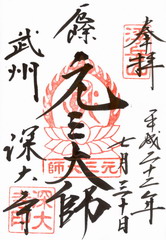 奉拝
平成二十二年
七月三十日
元三大師
武州
深大寺
元三大師
深大